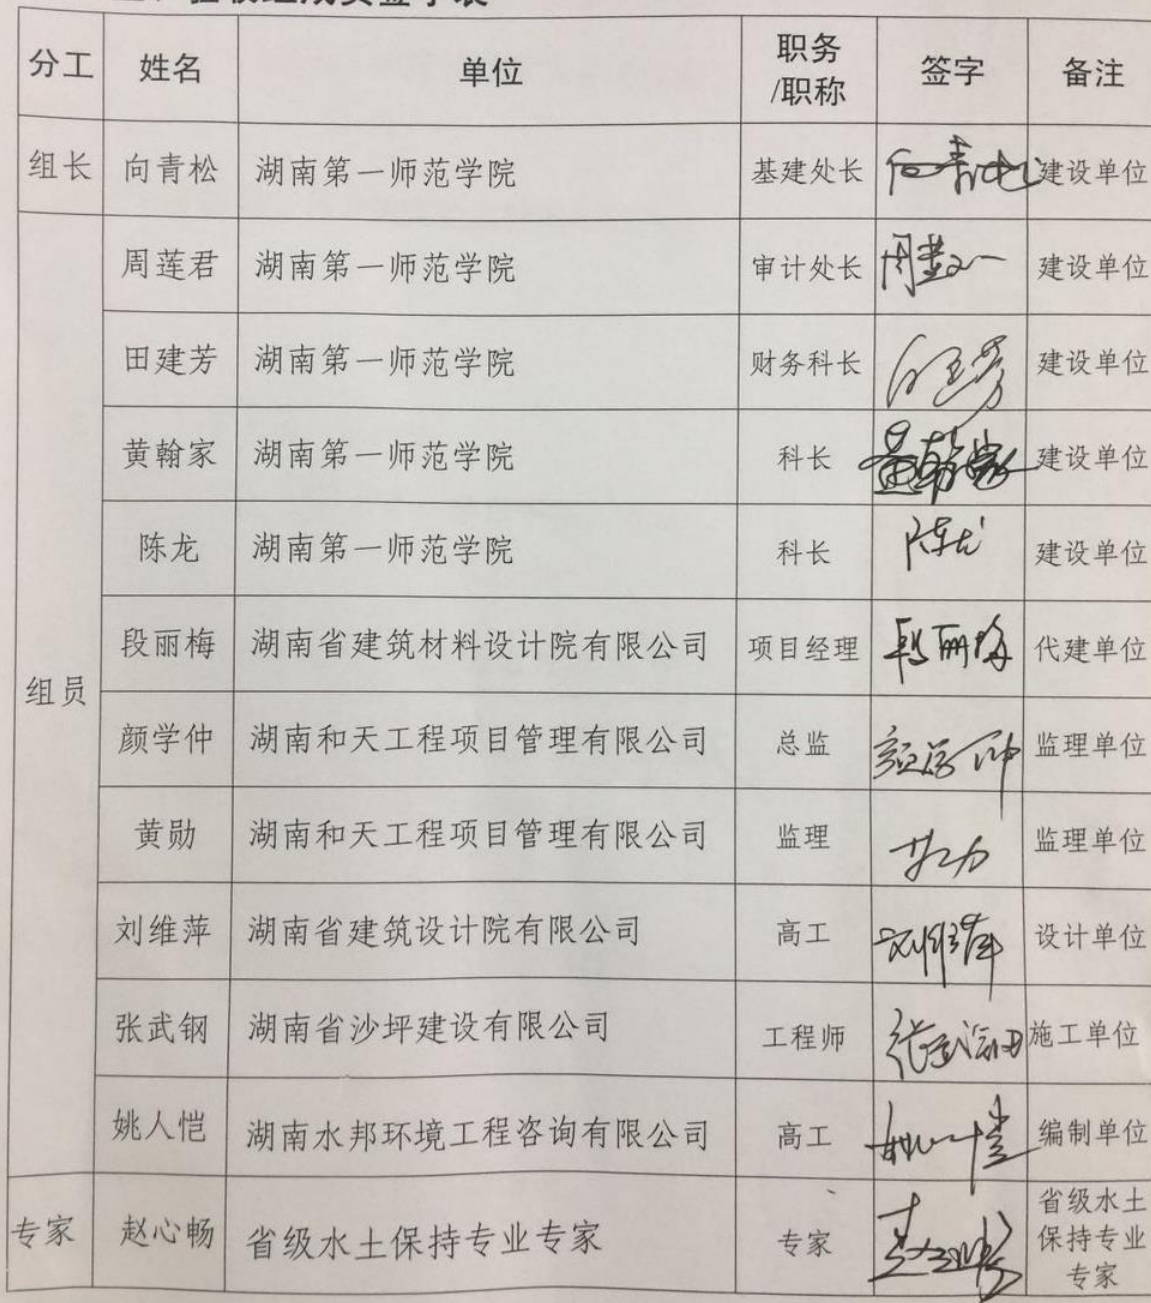 验收组成员签字表
分工 姓名 单位 职务/职称 签字 备注
组长 向青松 湖南第一师范学院 基建处长 向青松 建设单位
组员 周莲君 湖南第一师范学院 审计处长 建设单位
田建芳 湖南第一师范学院 财务科长 建设单位
黄翰家 湖南第一师范学院 科长 黄翰家 建设单位
陈龙 湖南第一师范学院 科长 陈龙 建设单位
段丽梅 湖南省建筑材料设计院有限公司 项目经理 段丽梅 代建单位
颜学仲 湖南和天工程项目管理有限公司 总监 颜学仲 监理单位
黄勋 湖南和天工程项目管理有限公司 监理 监理单位
刘维萍 湖南省建筑设计院有限公司 高工 刘维萍 设计单位
张武钢 湖南省沙坪建设有限公司 工程师 施工单位
姚人恺 湖南水邦环境工程咨询有限公司 高工 编制单位
专家 赵心畅 省级水土保持专业专家 专家 省级水土保持专业专家